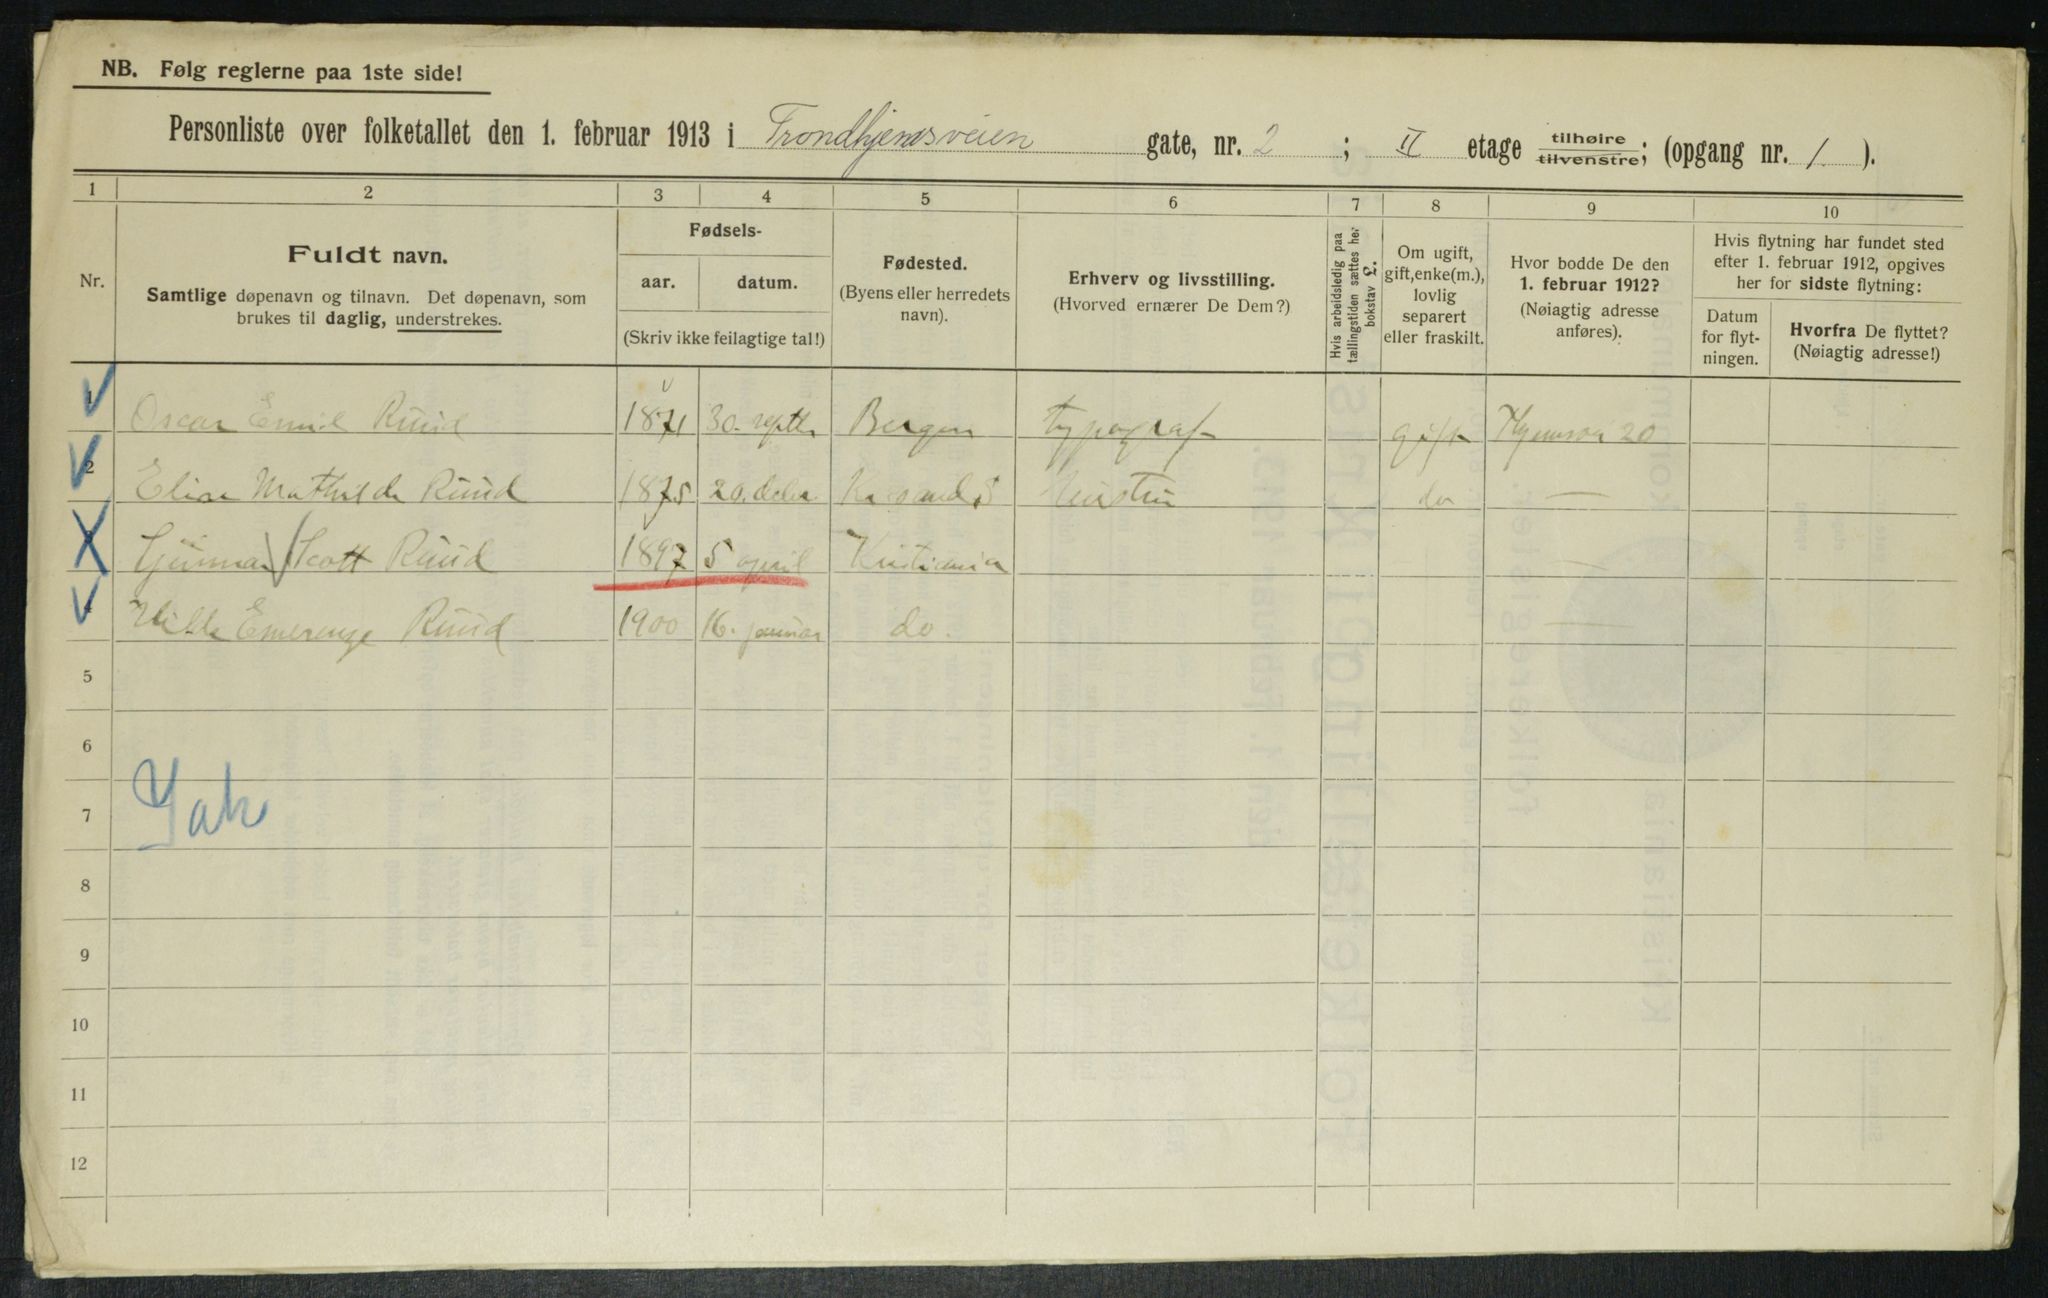 NB. Følg reglerne paa 1ste side!
Personliste over folketallet den 1. februar 1913 i Trondhjemsveien gate, nr. 2 ; II etage tilhøire tilvenstre; (opgang nr. 1 ).
1 2 3 4 5 6 7 8 9 10
Nr.
Fuldt navn.
Samtlige døpenavn og tilnavn. Det døpenavn, som
brukes til daglig, understrekes.
Fødsels-
aar. datum.
(Skriv ikke feilagtige tal!)
Fødested.
(Byens eller herredets
navn).
Erhverv og livsstilling.
(Hvorved ernærer De Dem?)
Hvis arbeidsledig paa
tællingstiden sættes her
bokstav L.
Om ugift,
gift, enke(m.),
lovlig
separert
eller fraskilt.
Hvor bodde De den
1. februar 1912?
(Nøiagtig adresse
anføres).
Hvis flytning har fundet sted
efter 1. februar 1912, opgives
her for sidste flytning:
Datum
for flyt-
ningen.
Hvorfra De flyttet?
(Nøiagtig adresse!)
1 Oscar Emil Ruud 1871 30. septb Bergen typograf gift 20
2 Elise Mathilde Ruud 1875 20. decbr. Hustru do —
Gunnar Scott Ruud 1897 5 april Kristiania
4 Emerenze Ruud 1900 16. januar do. —
5
6
7
8
9
10
11
12